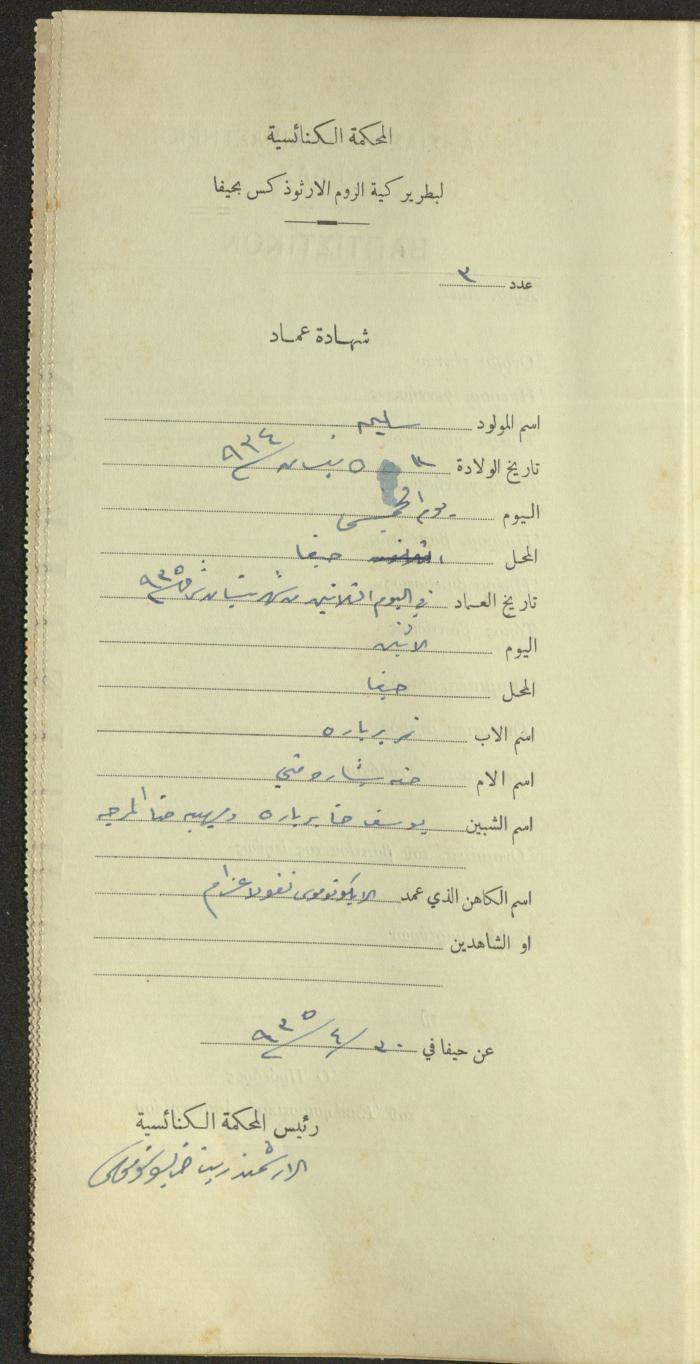 المحكمة الكنائسية
لبطريركية الروم الارثوذكس بحيفا
عدد ٣
شهادة عماد
اسم المولود سليم
تاريخ الولادة ٥ نيسان ٩٣٤
اليوم يوم الخميس
المحل حيفا
تاريخ العماد في اليوم الثلاثين من شهر نيسان ٩٣٥
اليوم الاثنين
المحل حيفا
اسم الاب بربارة
اسم الام حنه بشاره متي
اسم الشبين يوسف حنا برباره وبهيه حنا
اسم الكاهن الذي عمد الايكونوموس نقولا عزام
او الشاهدين
عن حيفا في ٣٠/٤/٩٣٥
رئيس المحكمة الكنائسية
الارشمندريت